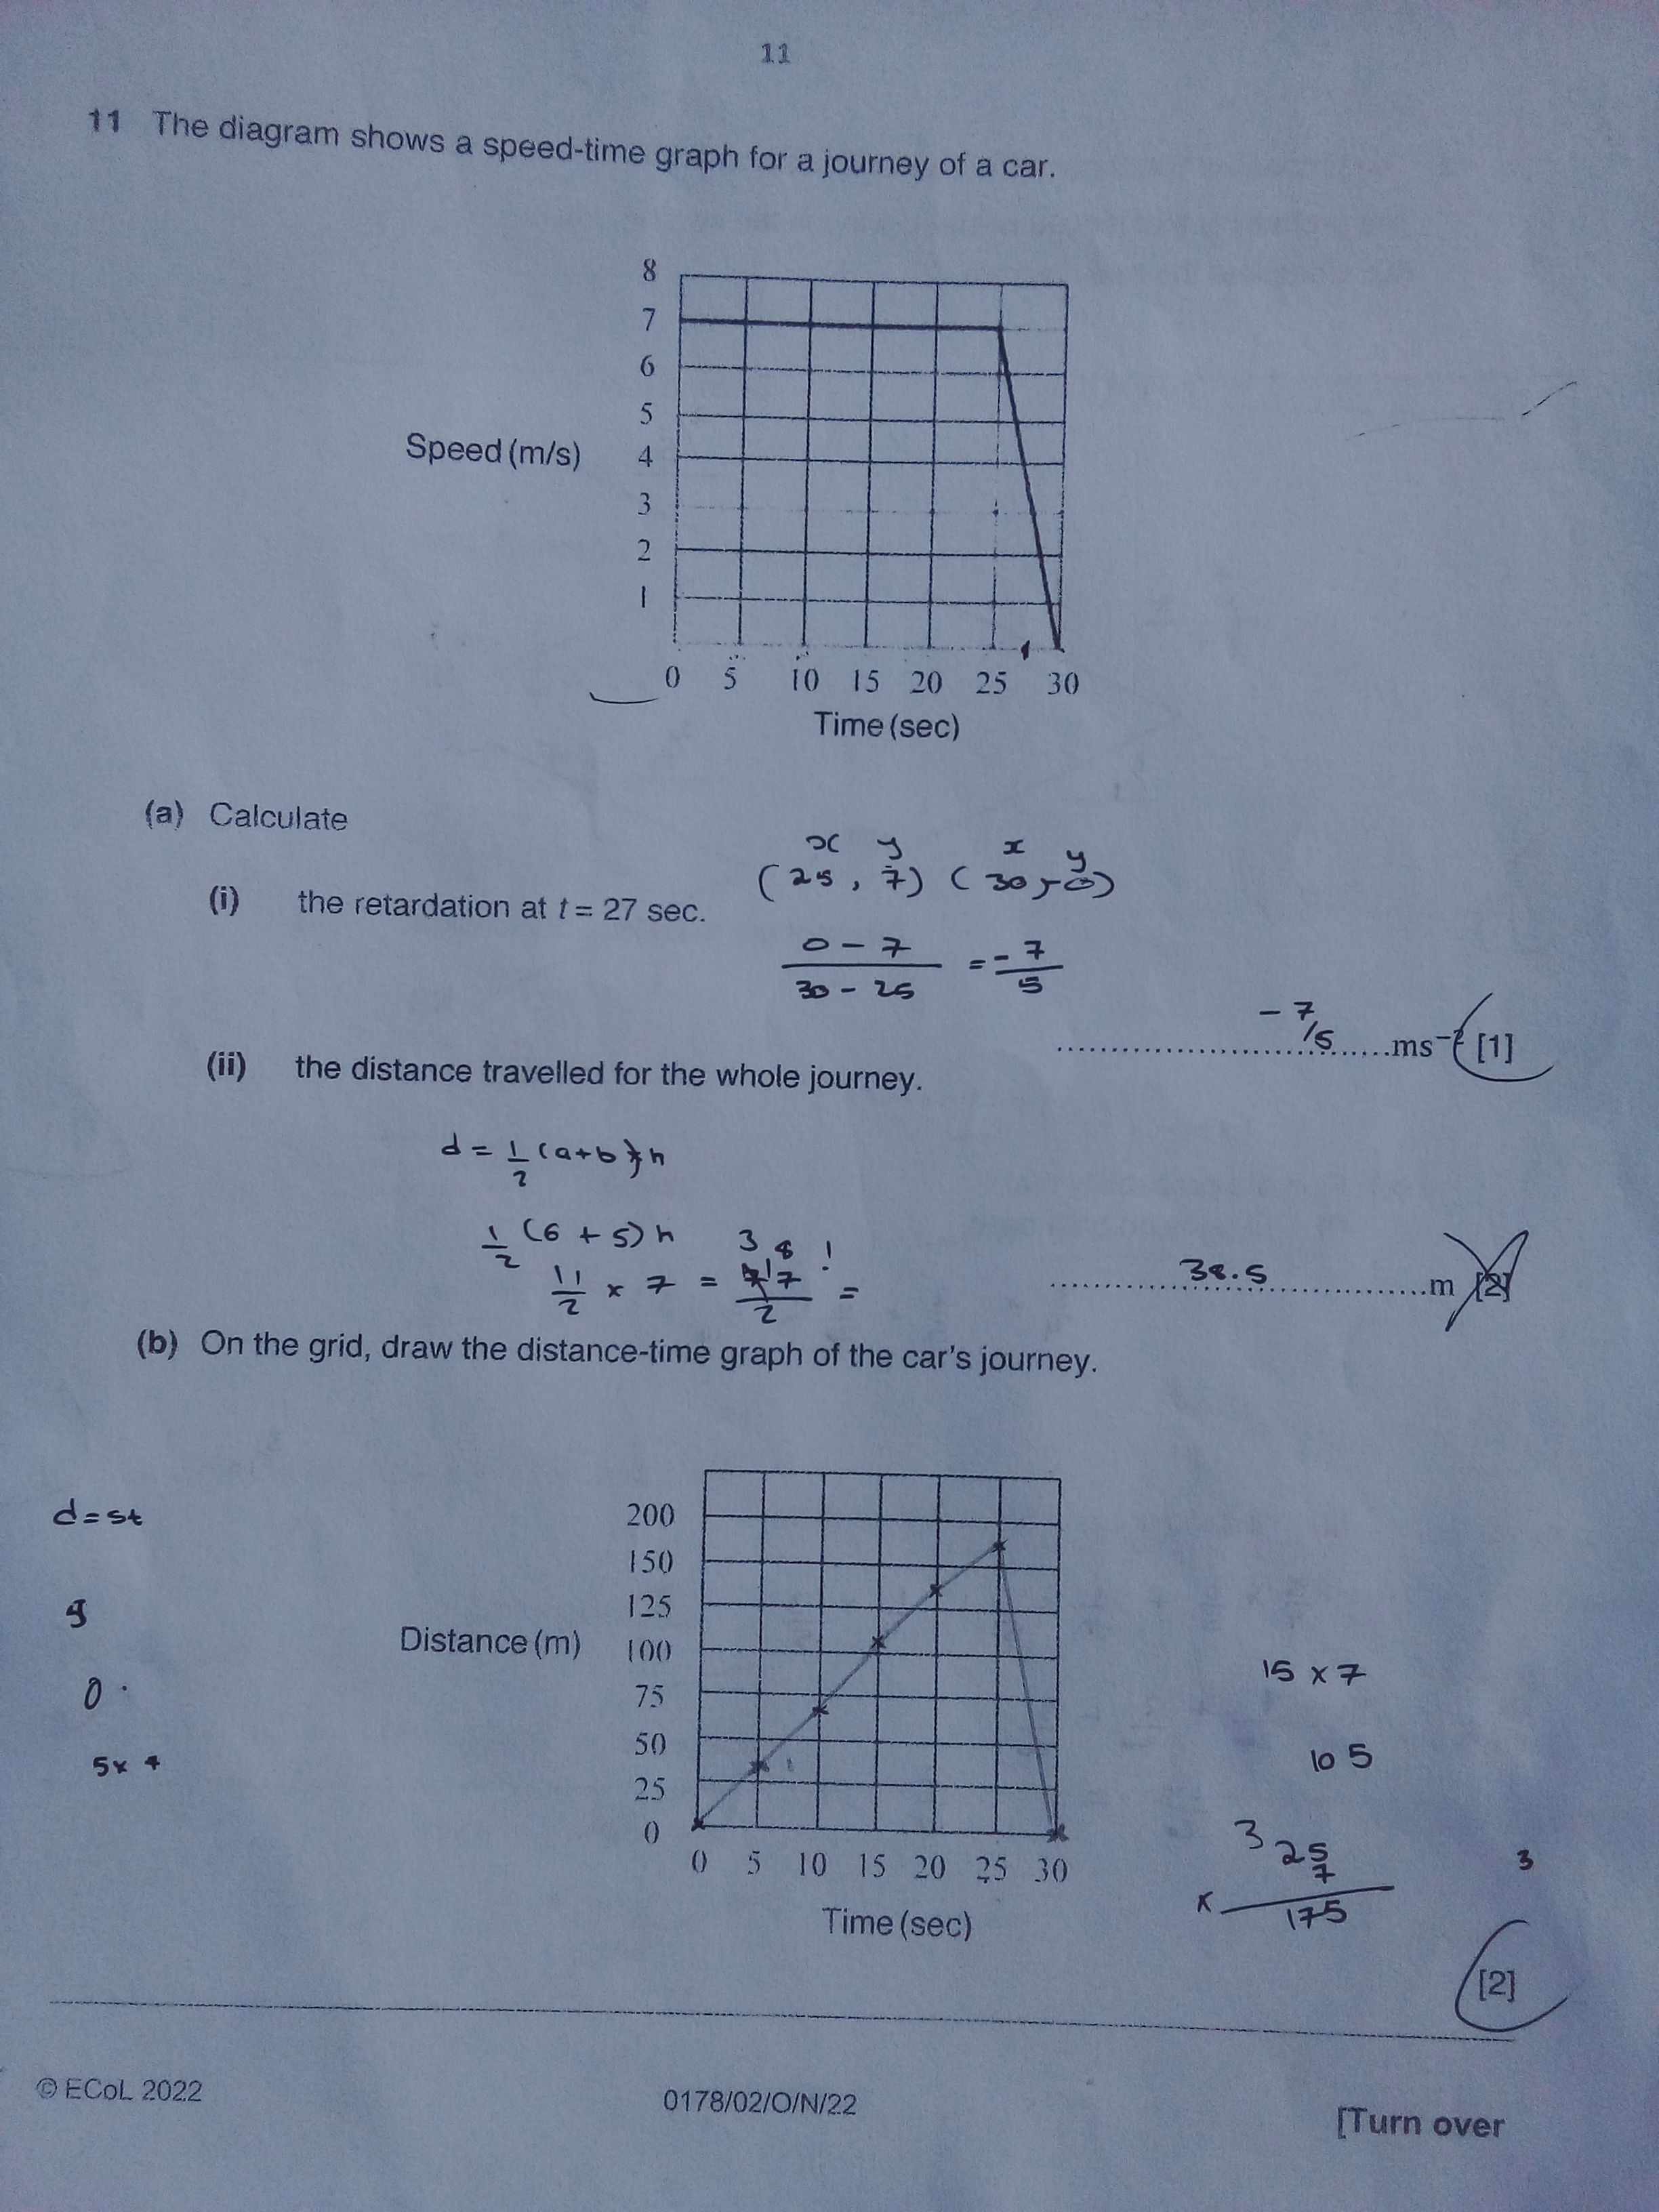 11
11 The diagram shows a speed-time graph for a journey of a car.
8
7
6
5
Speed (m/s)
4
3
2
1
0 5 10 15 20 25 30
Time (sec)
(a) Calculate
x y x y
(25, 7) (30, 0)
(i) the retardation at t = 27 sec.
0 - 7 / 30 - 25 = - 7/5
- 7/5 ms⁻² [1]
(ii) the distance travelled for the whole journey.
d = 1/2 (a+b) h
1/2 (6 + 5) h
11/2 x 7 = 77/2 =
38.5 m [2]
(b) On the grid, draw the distance-time graph of the car's journey.
d = st
0
5x
200
150
125
Distance (m)
100
75
50
25
0
0 5 10 15 20 25 30
Time (sec)
15 x 7
105
3
25
7
x
175
3
[2]
© ECoL 2022
0178/02/O/N/22
[Turn over